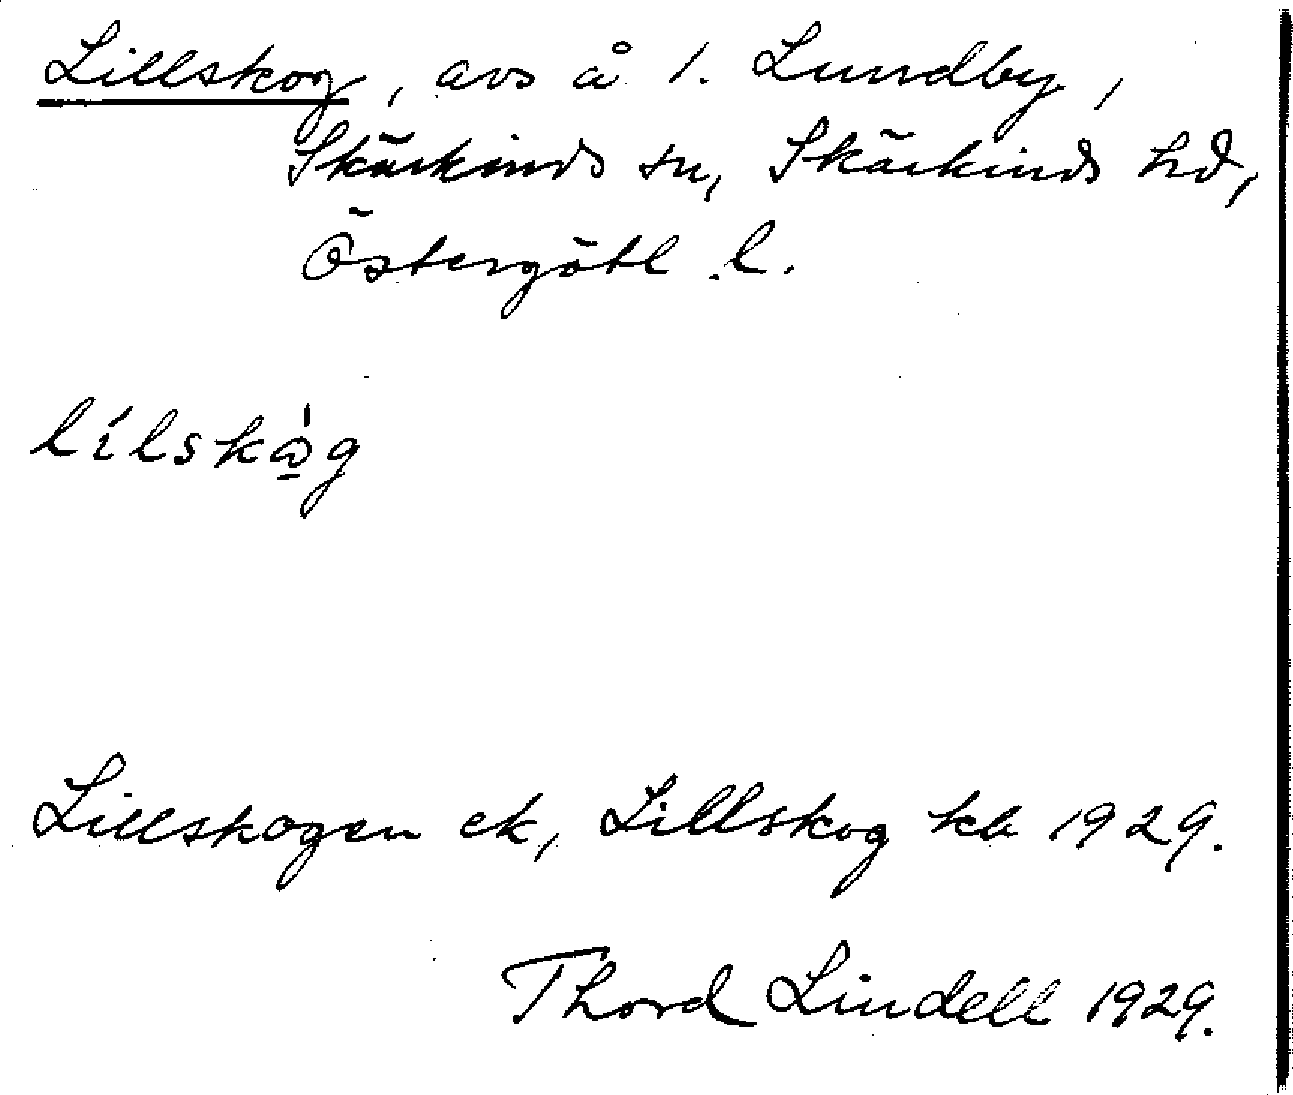 Lillskog, avs å 1. Lundby,
Skärkinds sn, Skärkinds hd,
Östergötl. l.
lílskåg
Lillskogen ek, Lillskog kb 1929.
Thord Lindell 1929.